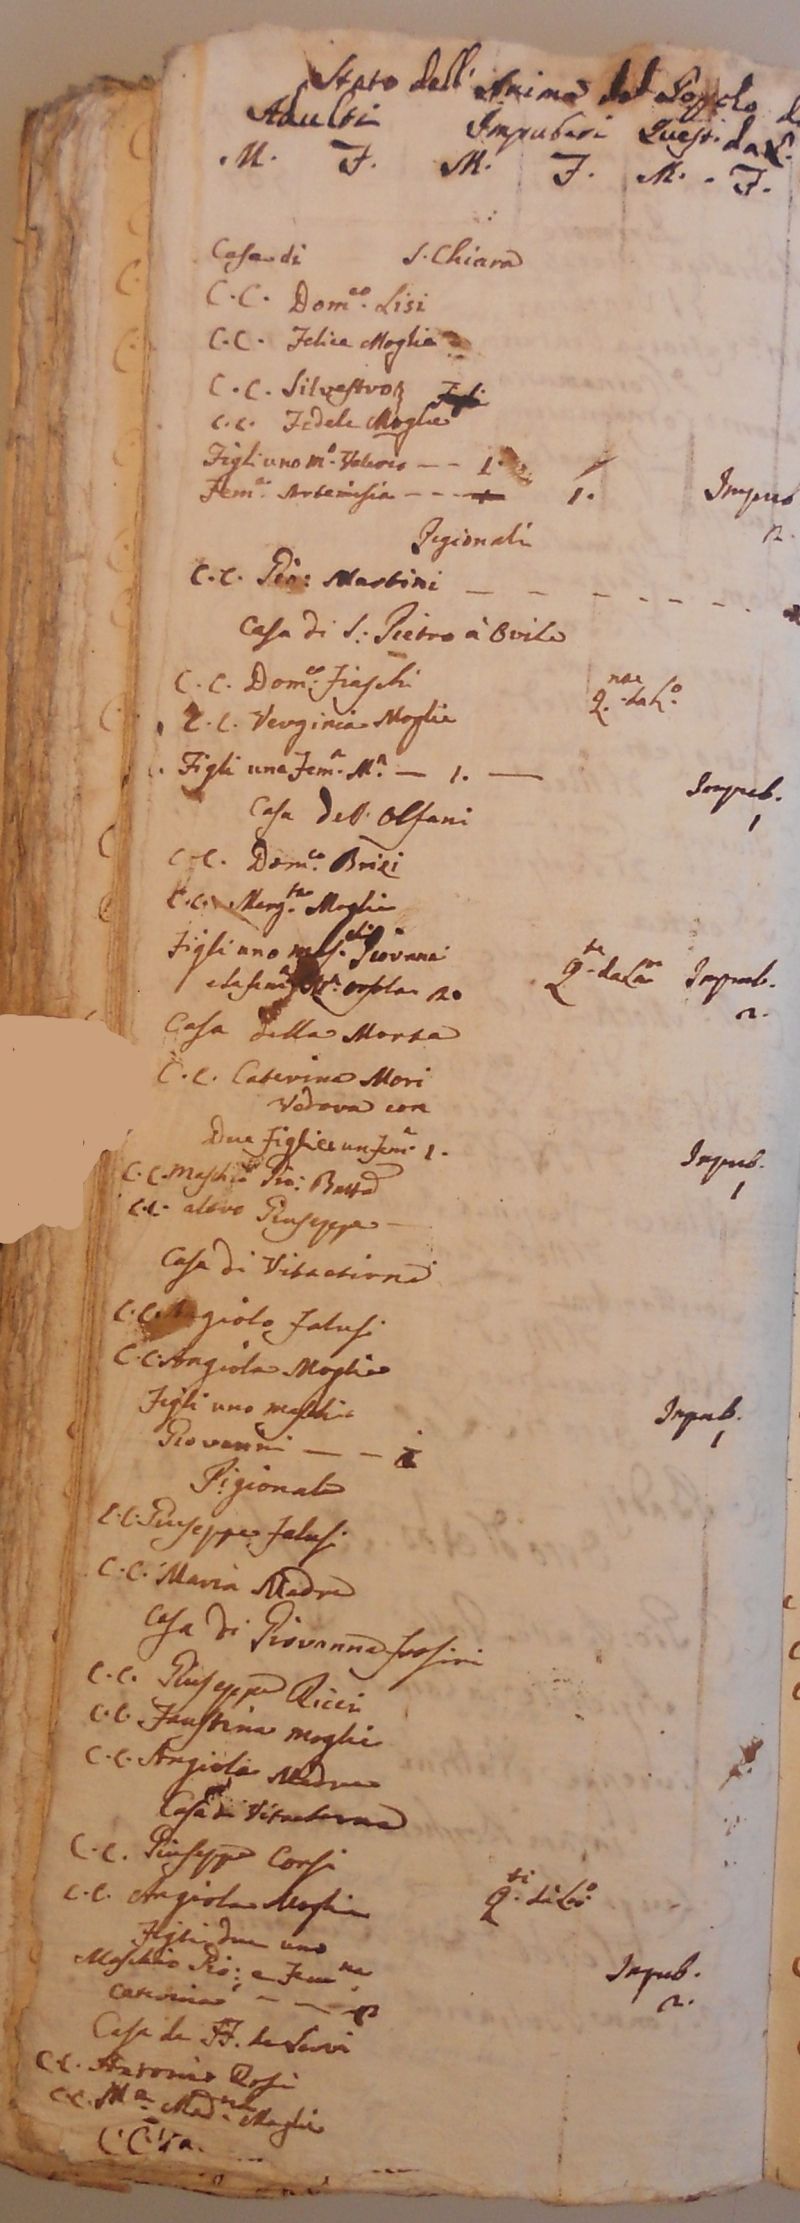 Stato dell' Anime del Popolo
Adulti Impuberi Quest. da L.
M. F. M. F. M. F.
Casa di S. Chiara
C. C. Dom.co Lisi
C. C. Felice Moglie
C. C. Silvestro
C. C. Fedele Moglie
Figli uno m.o Valerio -- 1.
Fem.a Artemisia --- 1. Impub
2.
Pigionali
C. C. Gio: Martini
Casa di S. Pietro à Ovile
C. C. Dom.co Fraschi
C. C. Verginia Moglie
Figli una Fem.a M.a — 1. — Impub.
1
Casa dell' Olfani
C. C. Dom.co Brizi
C. C. Marg.ta Moglie
Figli uno mas. di Giovanni
e la fem.a Orsola 2. Impub.
2.
Casa della Morta
C. C. Caterina Mori
Vedova con
Due figli e un fem.a 1. Impub.
1
C. C. Maschio Gio: Batta
C. C. altro Giuseppe
Casa di Vitaeterna
C. C. Angiolo Falusi
C. C. Angiola Moglie
Figli uno maschio Impub.
1
Giovanni —
Pigionale
C. C. Giuseppe Falusi
C. C. Maria Madre
Casa di Giovanna
C. C. Giuseppe Ricci
C. C. Faustina moglie
C. C. Angiola Madre
Casa di Vitaeterna
C. C. Giuseppe Corsi
C. C. Angiola Moglie
Figli due uno
Maschio Gio: e Fem.na Impub.
2.
Caterina — — 2
Casa de FF. de Servi
C. C. Antonio Rosi
C. C. M.a Mad.na Moglie